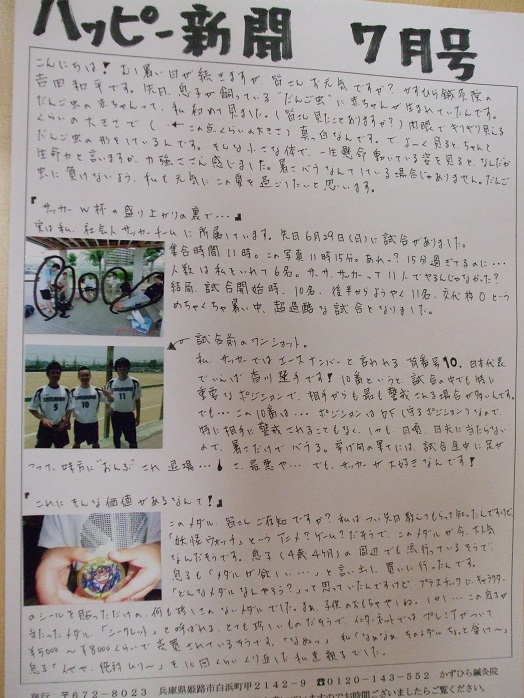 ハッピー新聞 7月号
こんにちは! むし暑い日が続きますが、皆さんお元気ですか? かずひろ鍼灸院の
吉田和平です。先日、息子が飼っている"だんご虫"に赤ちゃんが生まれていたんです。
だんご虫の赤ちゃんって、私初めて見ました。(皆さん見たことありますか?) 肉眼でギリギリ見える
くらいの大きさで(・←この点くらいの大きさ)真白なんです。で、よーく見ると、ちゃんと
だんご虫の形をしているんです。そんな小さな体で、一生懸命動いている姿を見ると、なんだか
生命力と言いますか、力強さごく感じました。暑さでバテてなんてしている場合じゃありません。だんご
虫に負けないよう、私も元気にこの夏を過ごしたいと思います。
『サッカーW杯の盛り上がりの裏で・・・』
実は私、社会人サッカーチームに所属しています。先日6月29日(日)に試合がありました。
集合時間11時。この写真11時15分。あれっ? 15分過ぎてるのに・・・
人数は私をいれて6名。サ、サ、サッカーって11人でやるんじゃなかった?
結局、試合開始時、10名、後半からようやく11名、交代枠0という
めちゃくちゃ暑い中、超過酷な試合となりました。
試合前のワンショット。
私、サッカーではエースナンバーと言われる背番号10。日本代表
でいえば香川選手です! 10番というと、試合の中でも特に
重要なポジションで、相手からも最も警戒される場合が多いんです。
でも・・・この10番は・・・ポジションはDF(守るポジション)なので、
特に相手に警戒されることもなく、しかも、日頃、日光に当たらない
ので、暑さだけでバテる。挙げ句の果てには、試合途中に足が
つって、味方に"おんぶ"され退場・・・! さ、最悪や・・・でも、サッカーが大好きなんです!
『これにそんな価値があるなんて!』
このメダル、皆さんご存知ですか? 私はつい先日教えてもらって知ったんですけど、
「妖怪ウォッチ」というアニメ?ゲーム?だそうで、このメダルが今、大人気
なんだそうです。息子(4歳4ヶ月)の周辺でも流行っているそうで、
息子も「メダルが欲しい・・・」と言い出し、買いに行ったんです。
「どんなメダルなんやろう?」って思っていたんですけど、プラスチックにキャラクター
のシールを貼っただけの、何も珍しさもないメダルでした。まぁ、子供のおもちゃやしね。(が)・・・この息子が
当たったメダル、「シークレット」と呼ばれる、とても珍しいものだそうで、インターネットではプレミアがついて
¥5000～¥8000くらいで売買されているそうです。「なぬっ」
息子「イヤや、絶対ムリ～」を10回くらいくり返した私達親子でした。
発行 〒672-8023 兵庫県姫路市白浜町甲2142-9 ☎0120-143-552 かずひろ鍼灸院